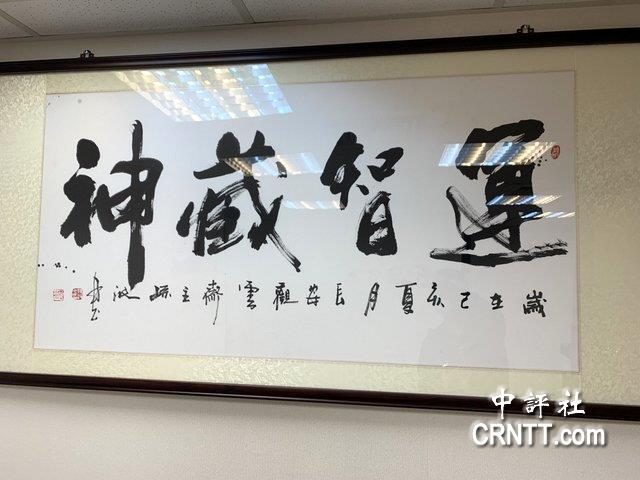 運智藏神
歲在己亥夏月長安觀雲齋主
中評社
CRNTT.com